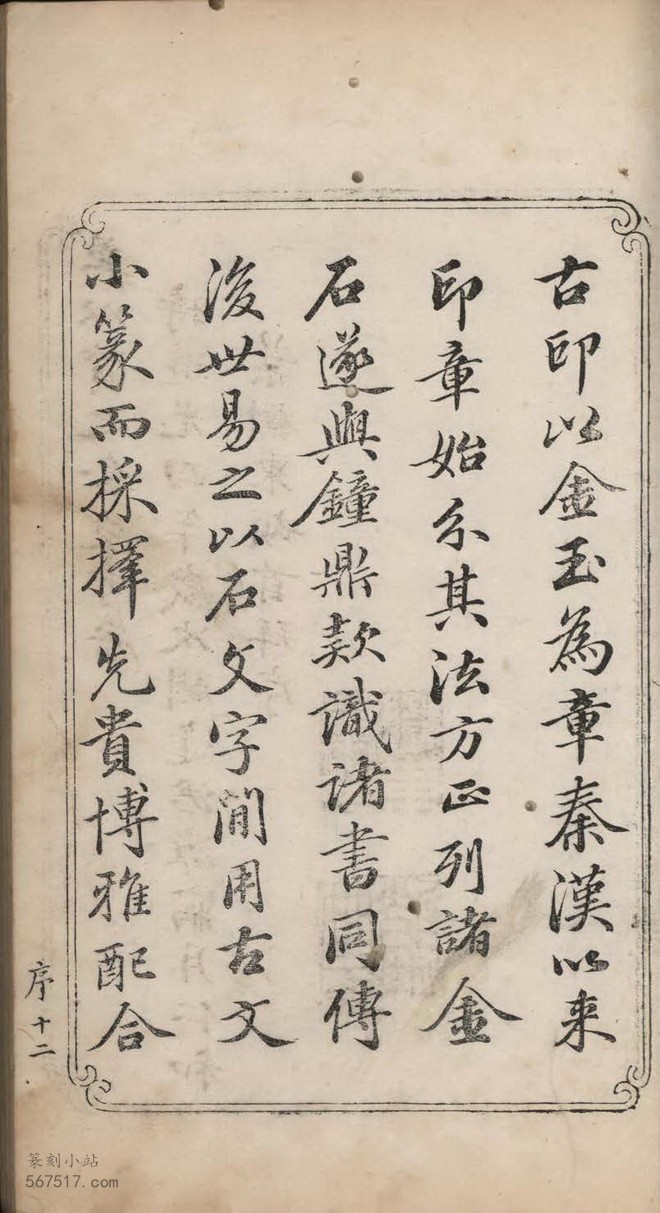 古印以金玉為章秦漢以来
印章始分其法方正列諸金
石遂與鐘鼎款識諸書同傳
後世易之以石文字間用古文
小篆而採擇先貴博雅配合
序十二
篆刻小站
567517.com